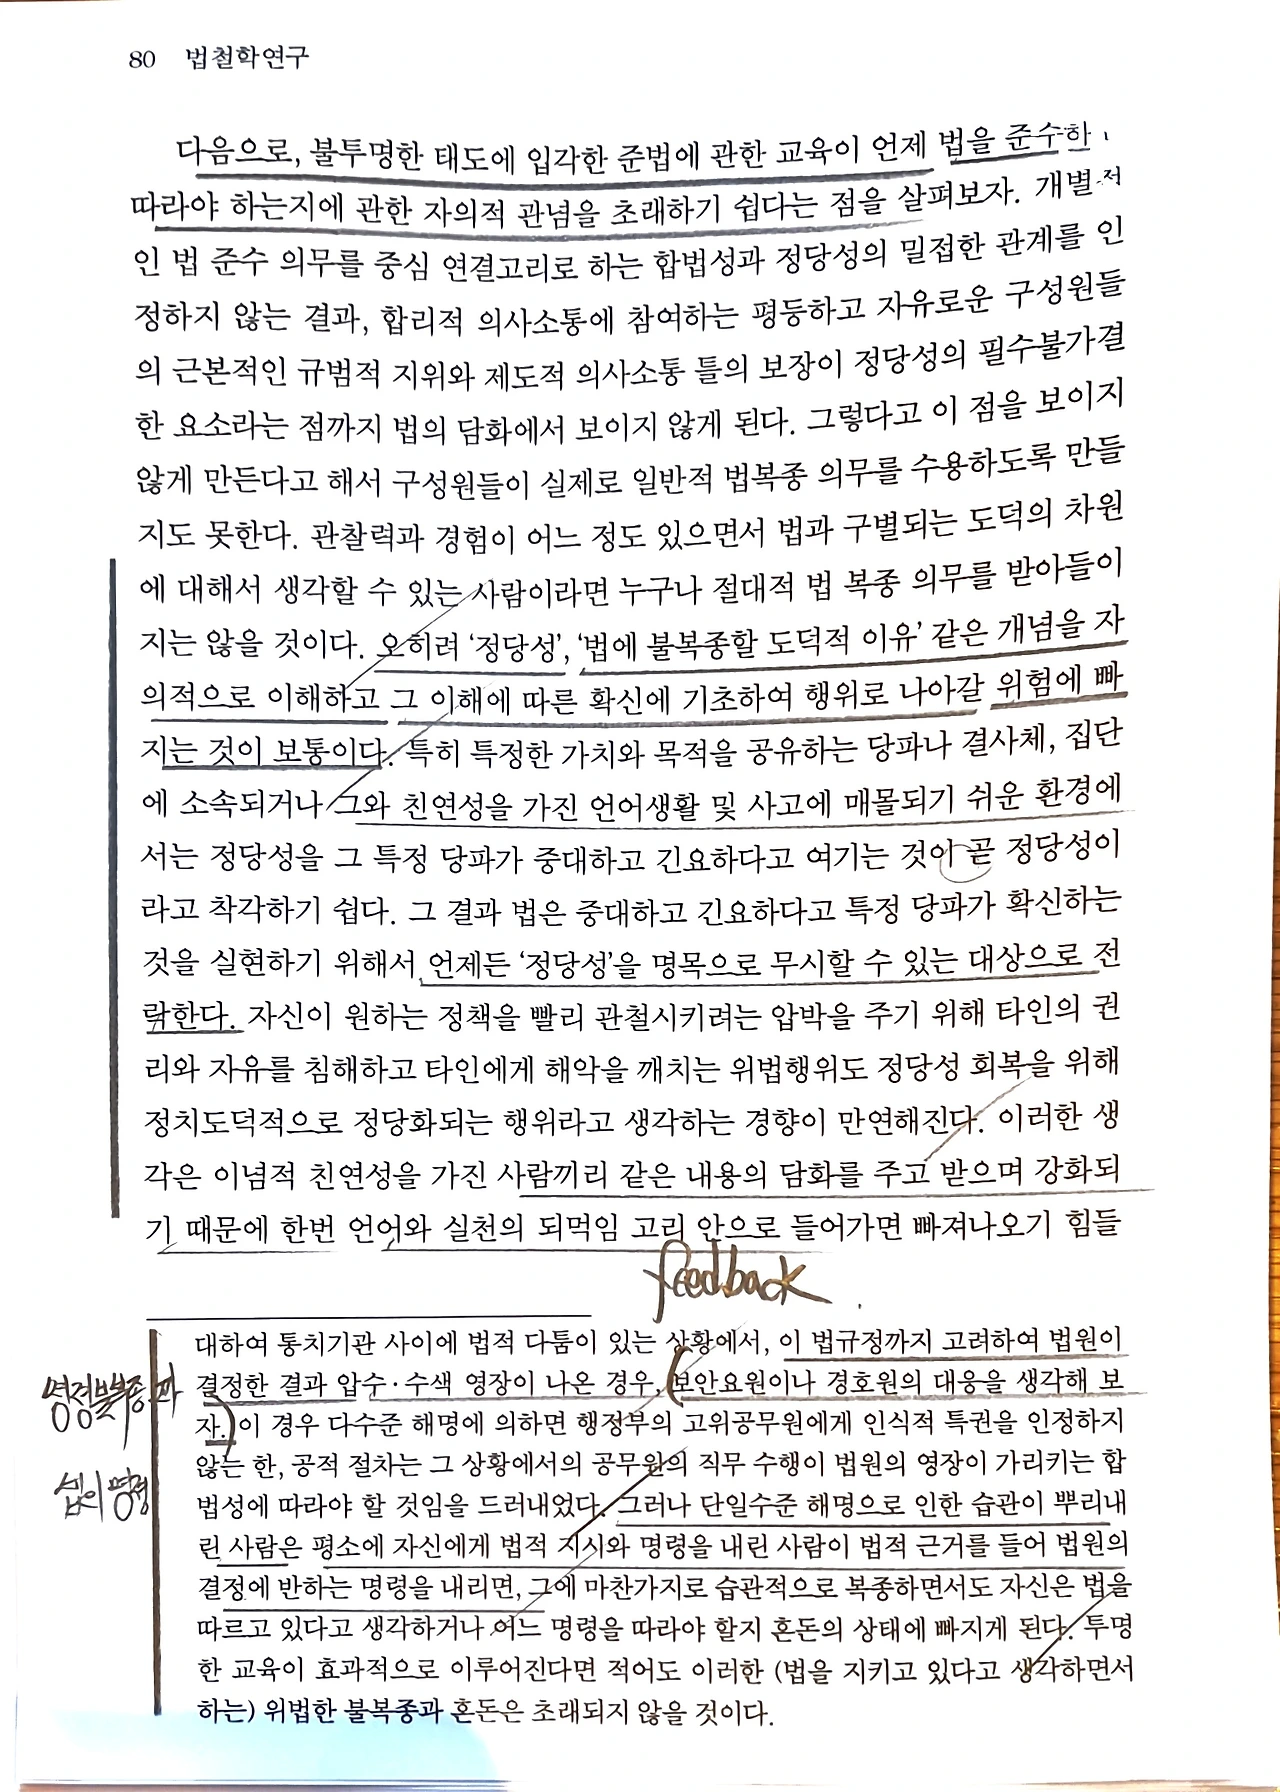 80 법철학연구
다음으로, 불투명한 태도에 입각한 준법에 관한 교육이 언제 법을 준수하
따라야 하는지에 관한 자의적 관념을 초래하기 쉽다는 점을 살펴보자. 개별적
인 법 준수 의무를 중심 연결고리로 하는 합법성과 정당성의 밀접한 관계를 인
정하지 않는 결과, 합리적 의사소통에 참여하는 평등하고 자유로운 구성원들
의 근본적인 규범적 지위와 제도적 의사소통 틀의 보장이 정당성의 필수불가결
한 요소라는 점까지 법의 담화에서 보이지 않게 된다. 그렇다고 이 점을 보이지
않게 만든다고 해서 구성원들이 실제로 일반적 법복종 의무를 수용하도록 만들
지도 못한다. 관찰력과 경험이 어느 정도 있으면서 법과 구별되는 도덕의 차원
에 대해서 생각할 수 있는 사람이라면 누구나 절대적 법 복종 의무를 받아들이
지는 않을 것이다. 오히려 ‘정당성’, ‘법에 불복종할 도덕적 이유’ 같은 개념을 자
의적으로 이해하고 그 이해에 따른 확신에 기초하여 행위로 나아갈 위험에 빠
지는 것이 보통이다. 특히 특정한 가치와 목적을 공유하는 당파나 결사체, 집단
에 소속되거나 그와 친연성을 가진 언어생활 및 사고에 매몰되기 쉬운 환경에
서는 정당성을 그 특정 당파가 중대하고 긴요하다고 여기는 것이 곧 정당성이
라고 착각하기 쉽다. 그 결과 법은 중대하고 긴요하다고 특정 당파가 확신하는
것을 실현하기 위해서 언제든 ‘정당성’을 명목으로 무시할 수 있는 대상으로 전
락한다. 자신이 원하는 정책을 빨리 관철시키려는 압박을 주기 위해 타인의 권
리와 자유를 침해하고 타인에게 해악을 깨치는 위법행위도 정당성 회복을 위해
정치도덕적으로 정당화되는 행위라고 생각하는 경향이 만연해진다. 이러한 생
각은 이념적 친연성을 가진 사람끼리 같은 내용의 담화를 주고 받으며 강화되
기 때문에 한번 언어와 실천의 되먹임 고리 안으로 들어가면 빠져나오기 힘들
feedback
대하여 통치기관 사이에 법적 다툼이 있는 상황에서, 이 법규정까지 고려하여 법원이
결정한 결과 압수·수색 영장이 나온 경우, 보안요원이나 경호원의 대응을 생각해 보
자. 이 경우 다수준 해명에 의하면 행정부의 고위공무원에게 인식적 특권을 인정하지
않는 한, 공적 절차는 그 상황에서의 공무원의 직무 수행이 법원의 영장이 가리키는 합
법성에 따라야 할 것임을 드러내었다. 그러나 단일수준 해명으로 인한 습관이 뿌리내
린 사람은 평소에 자신에게 법적 지시와 명령을 내린 사람이 법적 근거를 들어 법원의
결정에 반하는 명령을 내리면, 그에 마찬가지로 습관적으로 복종하면서도 자신은 법을
따르고 있다고 생각하거나 어느 명령을 따라야 할지 혼돈의 상태에 빠지게 된다. 투명
한 교육이 효과적으로 이루어진다면 적어도 이러한 (법을 지키고 있다고 생각하면서
하는) 위법한 불복종과 혼돈은 초래되지 않을 것이다.